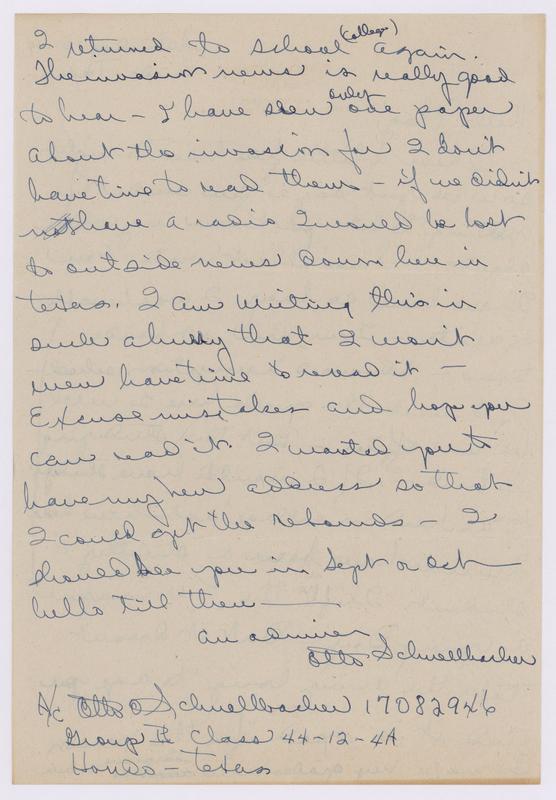 I returned to school (college) again.
The invasion news is really good
to hear – I have seen only one paper
about the invasion for I don't
have time to read them – if we didn't
have a radio I would be lost
to outside news down here in
Texas. I am writing this in
such a hurry that I won't
even have time to reread it –
Excuse mistakes and hope you
can read it. I wanted you to
have my new address so that
I could get the rebounds – I
should see you in Sept or Oct
hello till then ———
an admirer
Otto Schnellbacher
A/c Otto O Schnellbacher 17082946
Group II Class 44-12-4A
Hondo – Texas